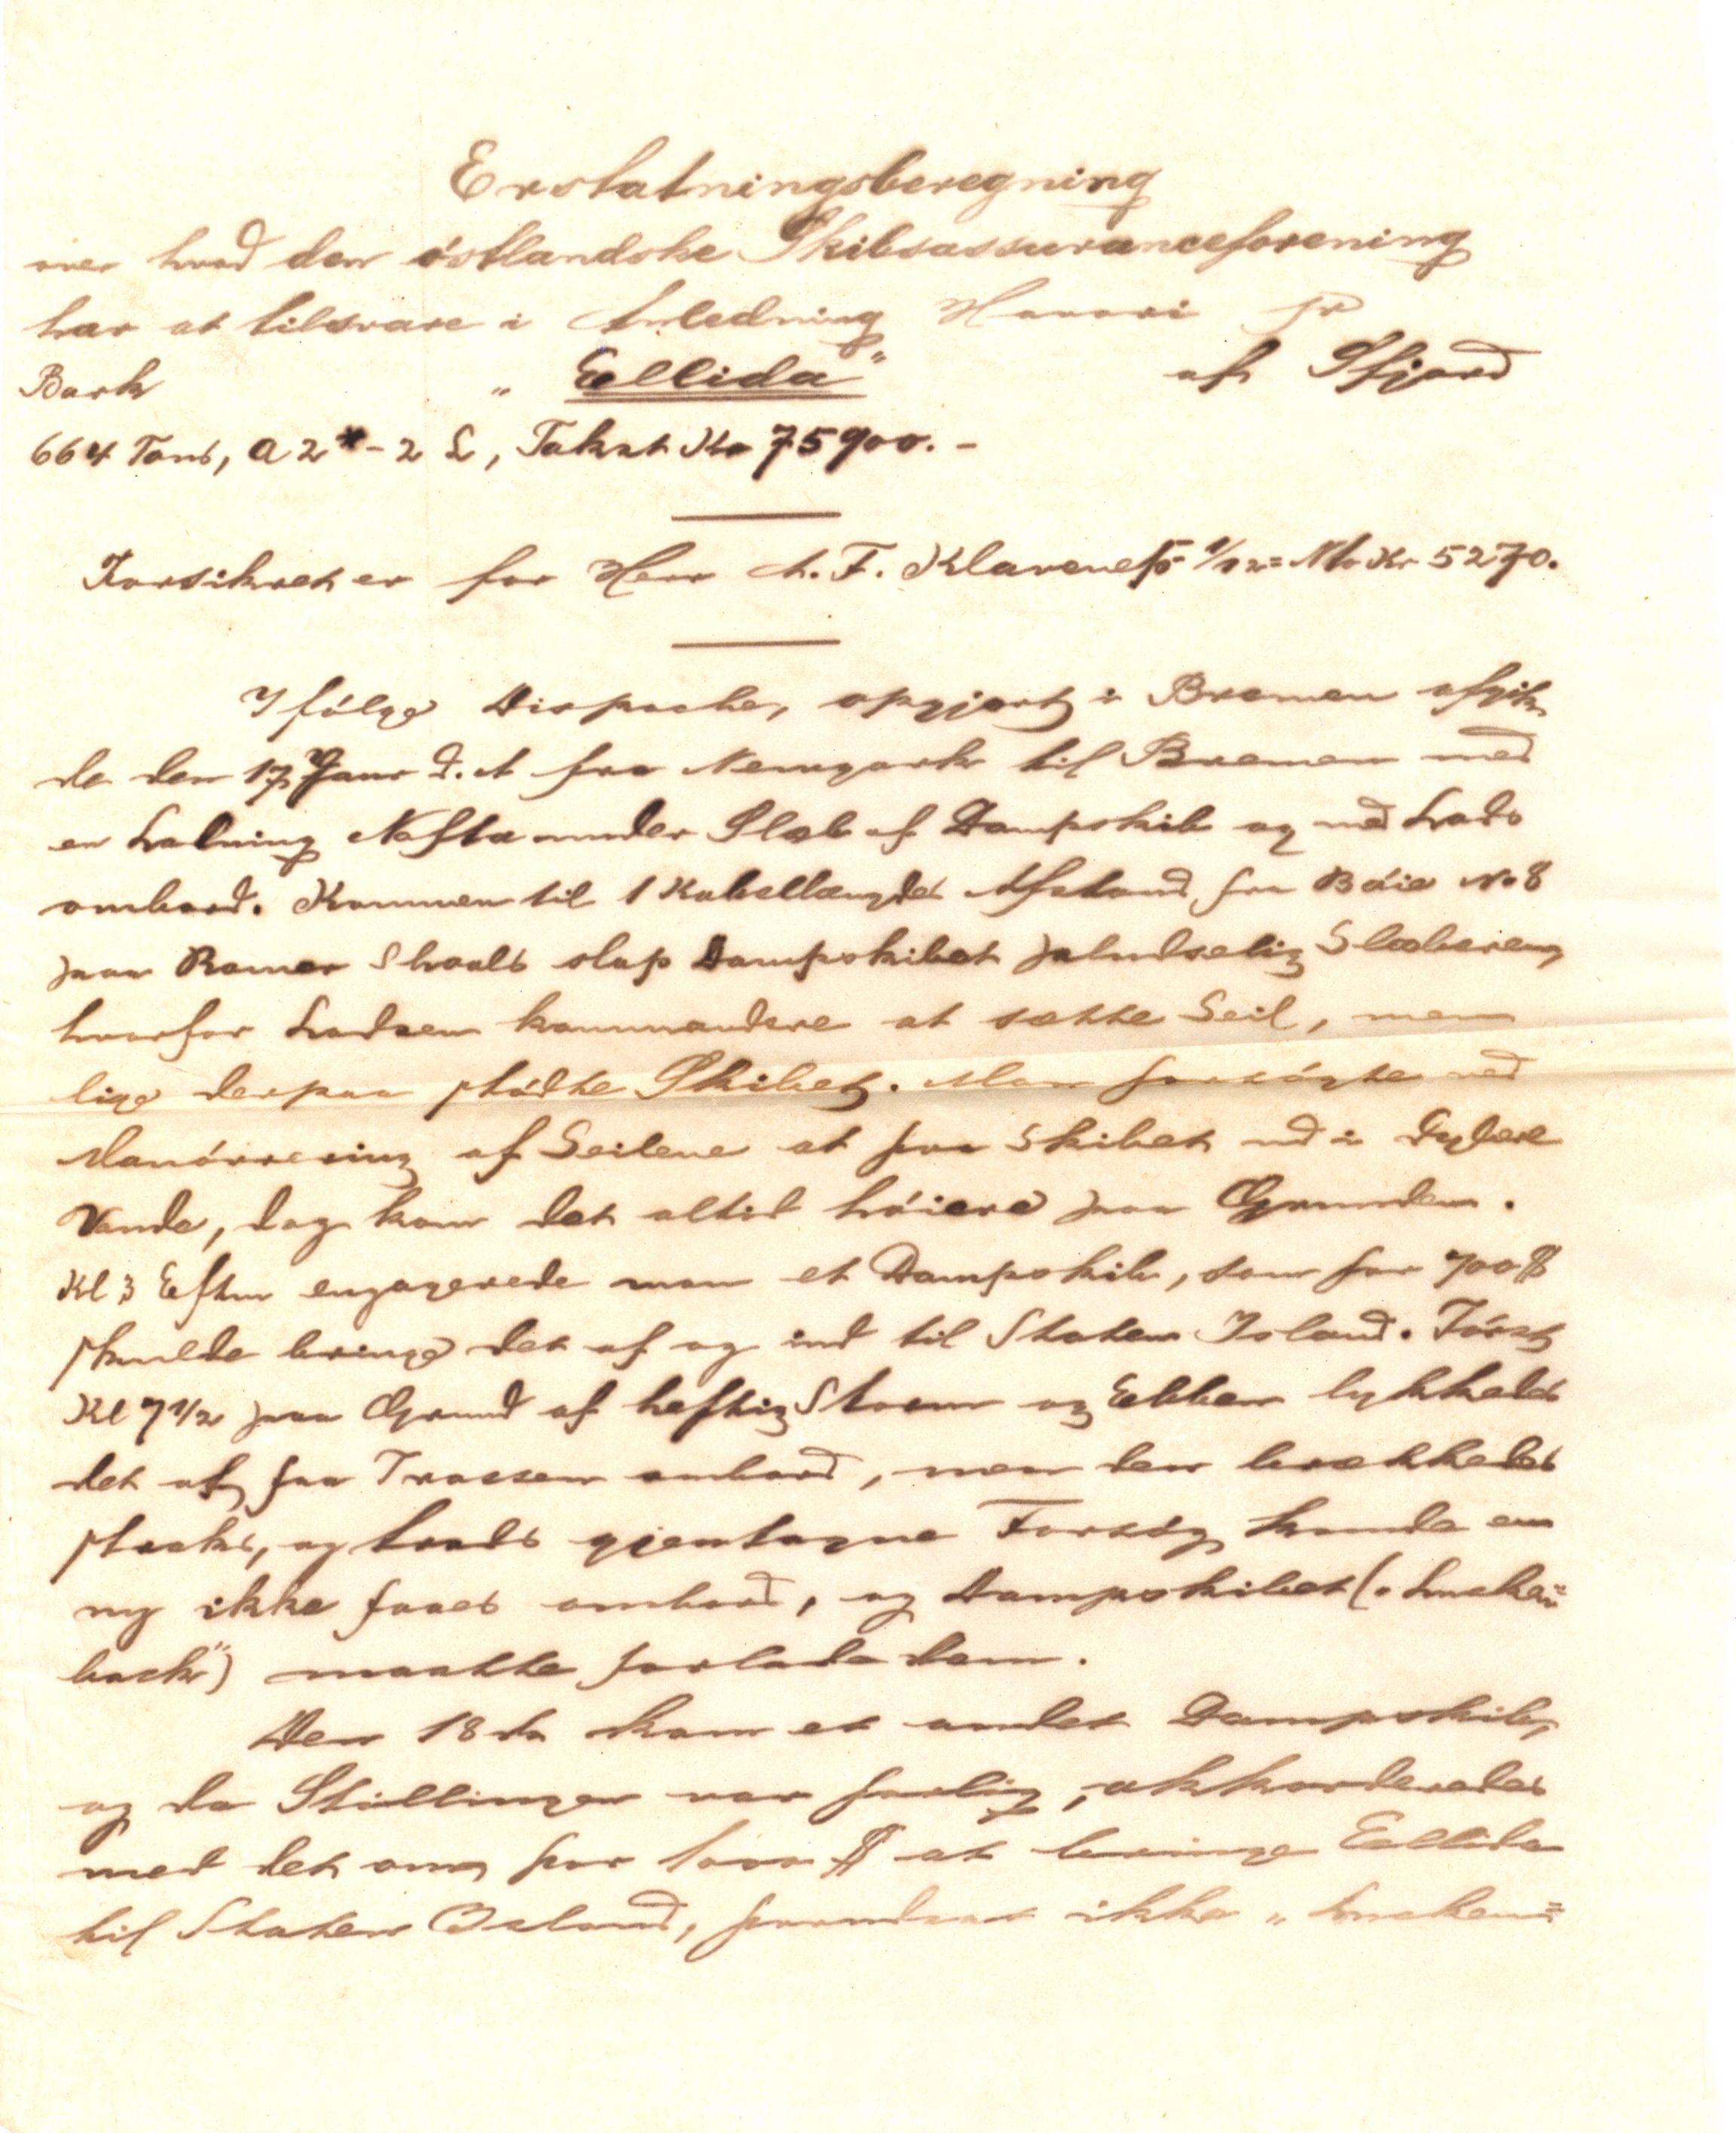 Erstatningsberegning
over hvad den östlandske Skibsassuranceforening
har at tilsvare i Anledning Havari pr
Bark "Ellida" af Sfjord
664 Tons, A 2*-2 L, Takst Kr 75900.-
Forsikret er for Herr A. F. Klaveness 1/12 = Kr 5270.
Ifölge Dispache, opgjort i Bremen afgik
de den 17 Janr d. A fra Newyork til Bremen med
en Ladning Nafta under Slæb af Dampskib og med Lods
ombord. Kommen til 1 Kabellængdes Afstand fra Böie No 8
paa Romer Shoals slap Dampskibet pludselig Slæberen,
hvorfor Lodsen kommandere at sætte Seil, men
lige derpaa stödte Skibet. Man forsögte ved
Manövrering af Seilene at faa Skibet ud i dybere
Vande, dog kom det altid höiere paa Grunden.
Kl 3 Eftm engagerede man et Dampskib, som for 700 $
skulde bringe det af og ind til Staten Island. Först
Kl 7 1/2 paa Grund af heftig Storm og Ebben lykkedes
det at faa Trossen ombord, men den brækkedes
straks, og trods gjentagne Forsög kunde en
ny ikke faaes ombord, og Dampskibet ("Lucken=
back") maatte forlade dem.
Den 18 da kom et andet Dampskib,
og da Stillingen var farlig, akkorderedes
med det om for $ at bringe Ellida
til Staten Island, forudsat ikke "Lucken=